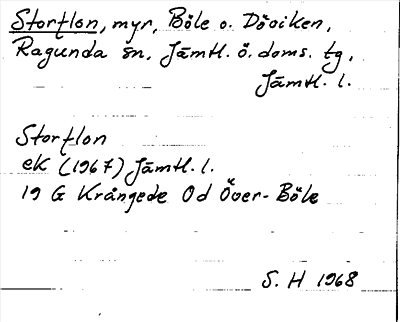 Storflon, myr, Böle o. Döviken,
Ragunda sn, Jämtl. ö. doms. tg,
Jämtl. l.
Storflon
ek (1967) Jämtl. l.
19 G Krångede Od Över-Böle
S. H 1968